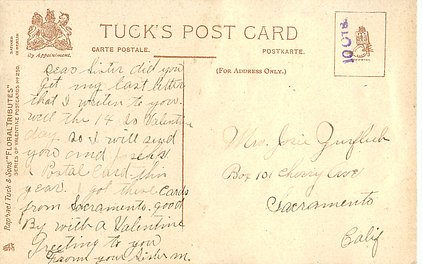 TUCK'S POST CARD
CARTE POSTALE.
POSTKARTE.
By Appointment.
(FOR ADDRESS ONLY.)
Raphael Tuck & Sons' "FLORAL TRIBUTES"
SERIES OF VALENTINE POSTCARDS No 250.
Dear Sister did you
get my last letter
that I writen to you.
well the 14 is Valentine
day so I will send
you and
a Postal Card this
year. I got these cards
from Sacramento. good
By with a Valentine
Greeting to you
From your Sister M.
Mrs.
Box 101 Cherry Ave
Sacramento
Calif